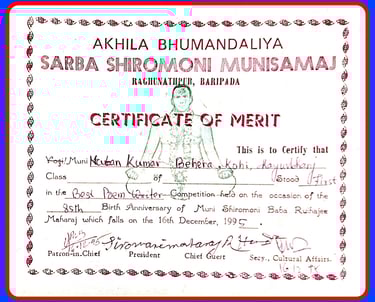 AKHILA BHUMANDALIYA
SARBA SHIROMONI MUNISAMAJ
RAGHUNATHPUR, BARIPADA
CERTIFICATE OF MERIT
This is to Certify that
Yogi/Muni Neutan Kumar Behera, Kohi, Mayurbhanj
Class of Stood First
in the Best Poem Writer Competition held on the occasion of the
85th Birth Anniversary of Muni Shiromoni Baba Ruthajee
Maharaj which falls on the 16th December, 1995.
Patron-in-Chief President Chief Guest Secy., Cultural Affairs.